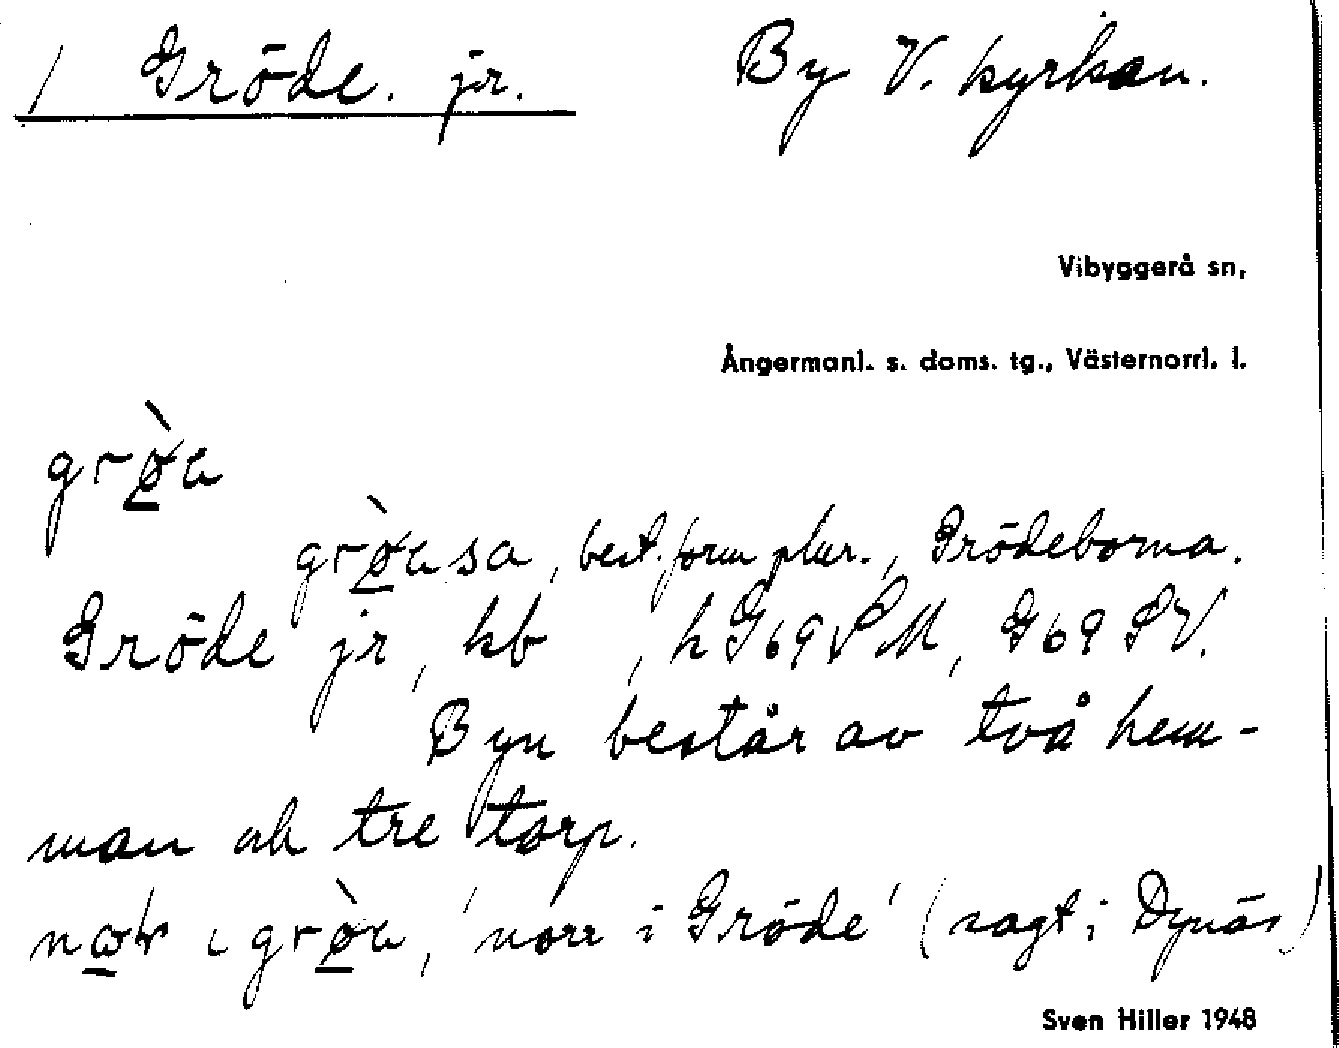 / Gröde. jr. By V. kyrkan.
Vibyggerå sn,
Ångermanl. s. doms. tg., Västernorrl. l.
grø̀a
grø̀asa, best. form plur., Grödeborna.
Gröde jr, kb , h G69 SM, G69 SV.
Byn består av två hem-
man ock tre torp.
i grø̀a, 'norr i Gröde' (sagt i Dynäs)
Sven Hiller 1948